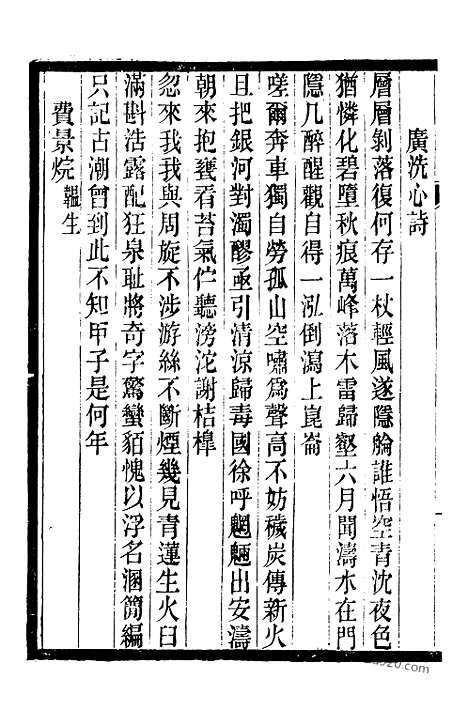 廣洗心詩
層層剝落復何存一杖輕風遂隱淪誰悟空青沈夜色
猶憐化碧墮秋痕萬峰落木雷歸壑六月聞濤水在門
隱几醉醒觀自得一泓倒瀉上崑崙
嗟爾奔車獨自勞孤山空嘯爲聲高不妨穢炭傳新火
且把銀河對濁醪亟引清涼歸毒國徐呼魍魎出安濤
朝來抱甕看苔氣伫聽滂沱謝桔槹
忽來我我與周旋不涉游絲不斷煙幾見青蓮生火臼
滿斟浩露配狂泉耻將奇字驚蠻貊愧以浮名溷簡編
只記古潮曾到此不知甲子是何年
費景烷 韞生